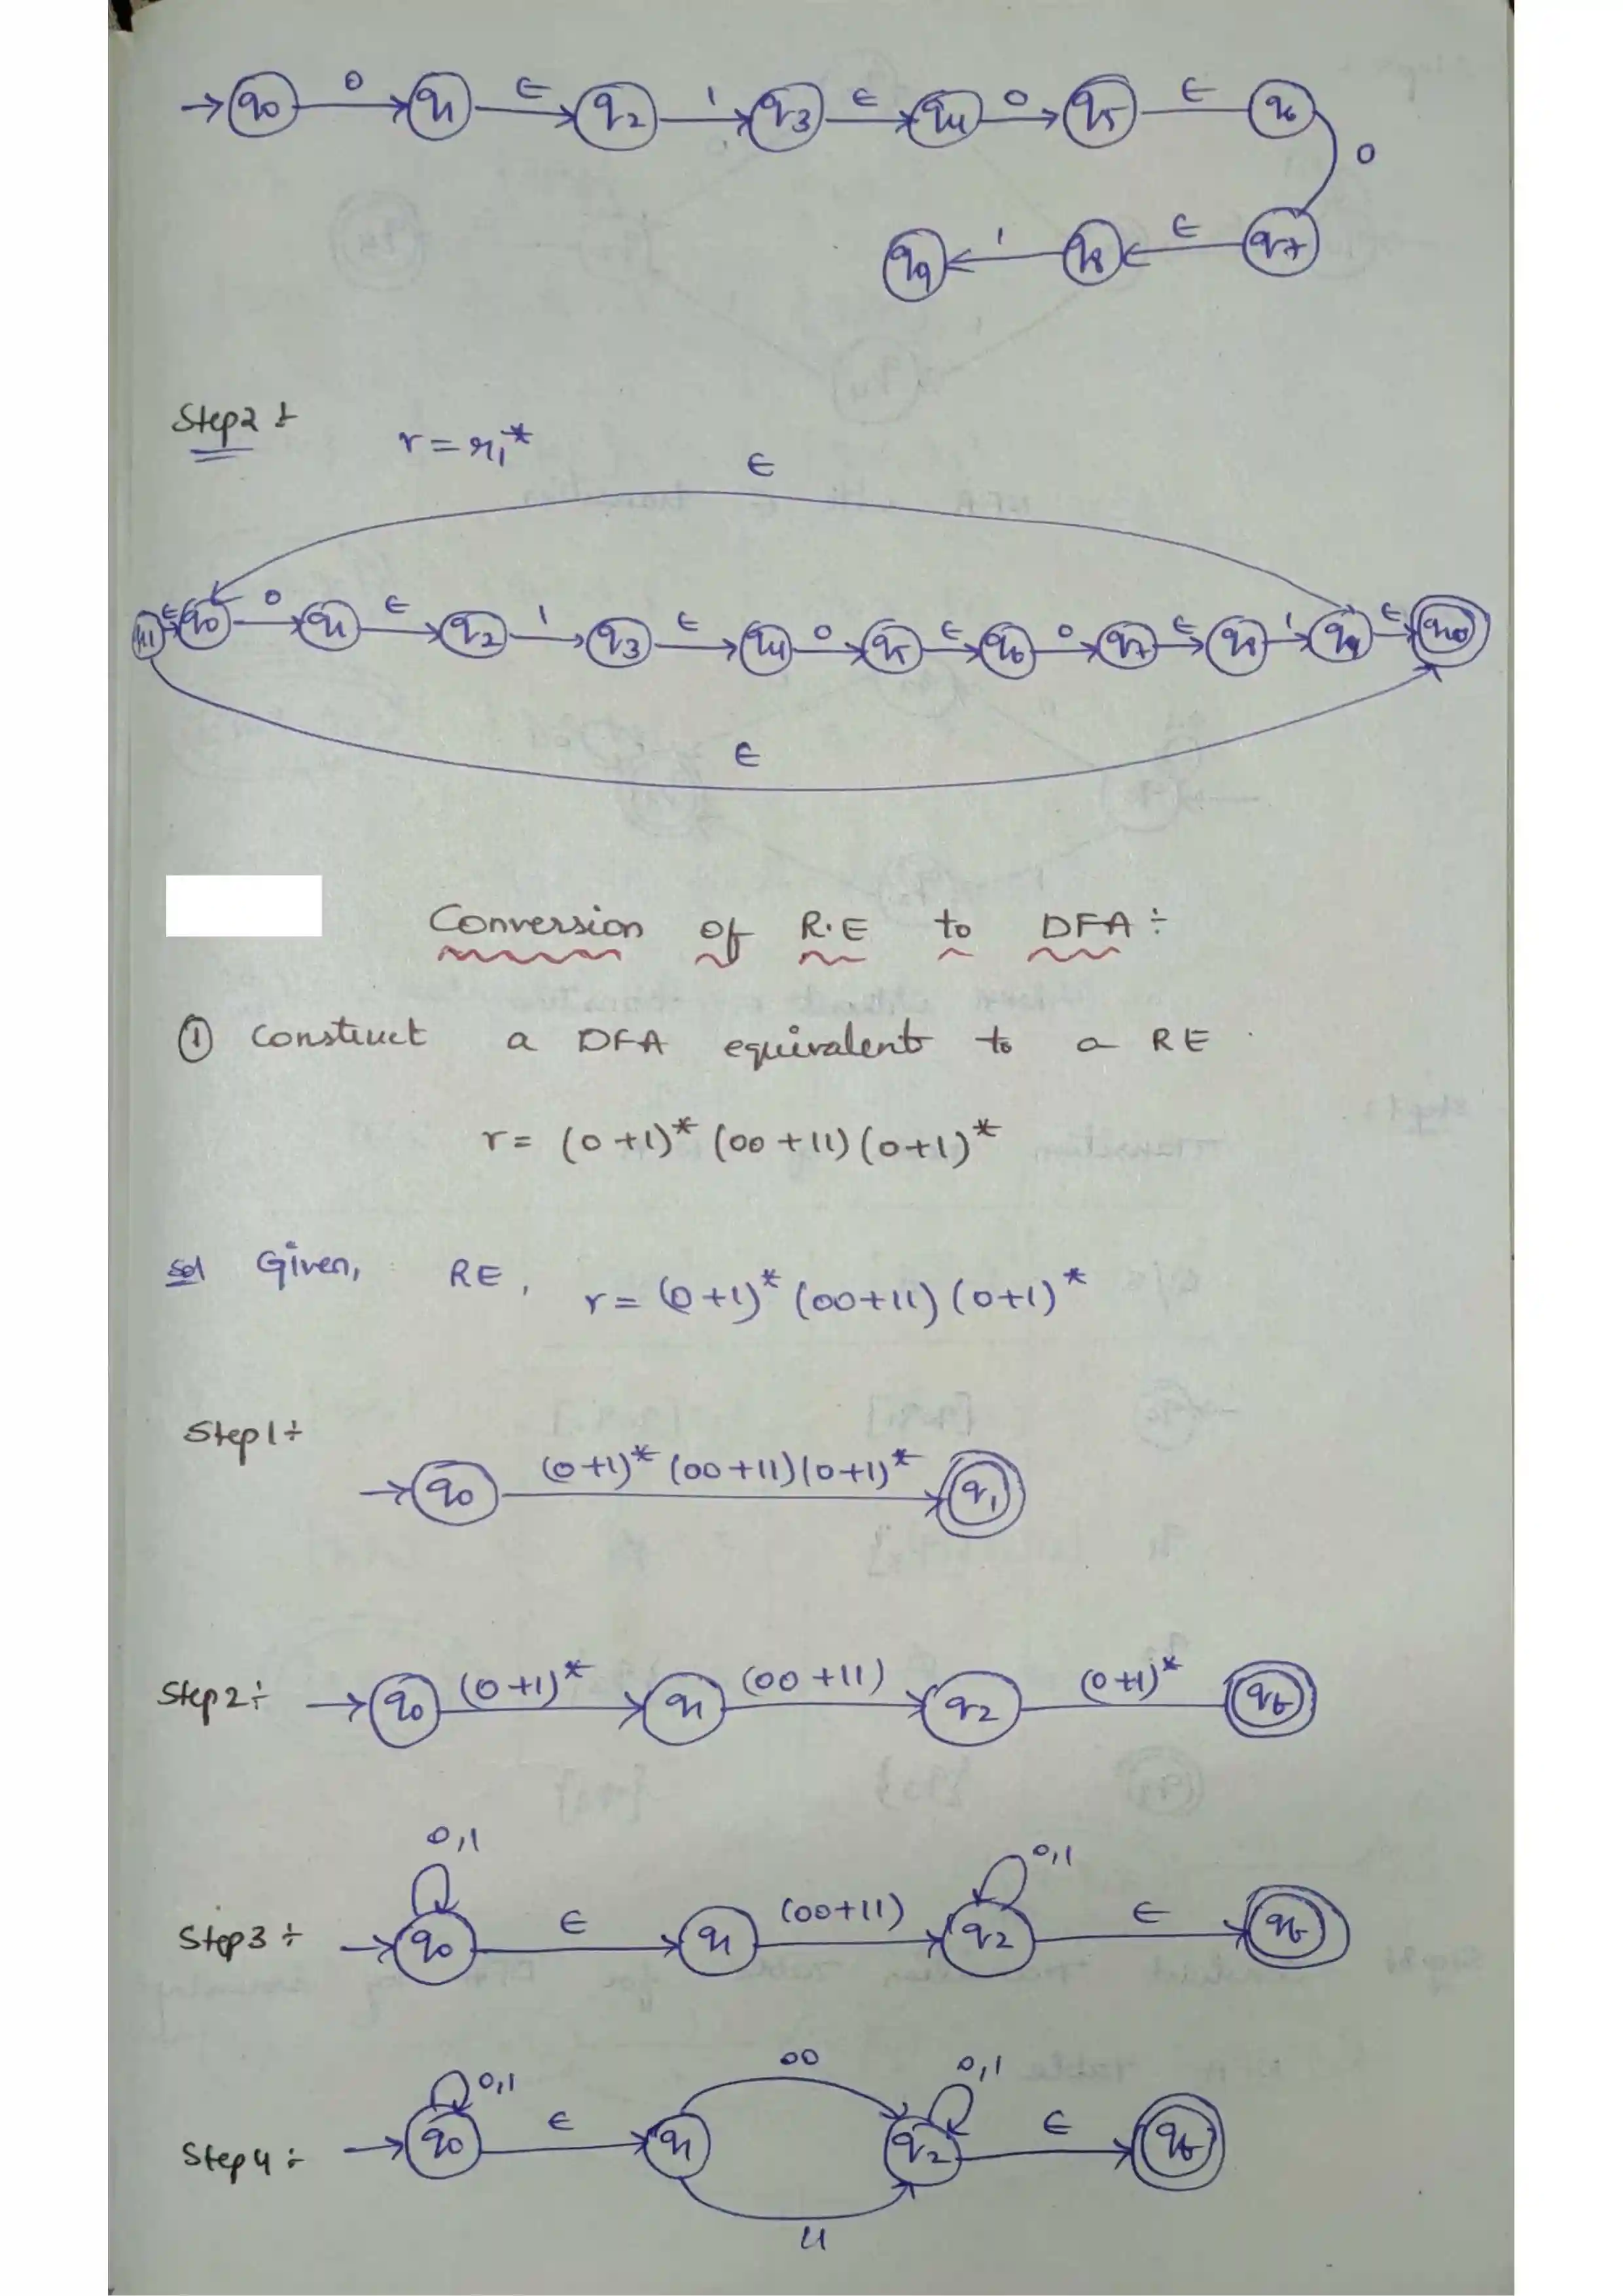 → q0 0 q1 ϵ q2 1 q3 ϵ q4 0 q5 ϵ q6
0
q9 1 q8 ϵ q7
Step2 ÷ r = r1*
ϵ
q11 ϵ q0 0 q1 ϵ q2 1 q3 ϵ q4 0 q5 ϵ q6 0 q7 ϵ q8 1 q9 ϵ q10
ϵ
Conversion of R.E to DFA ÷
① Construct a DFA equivalent to a RE .
r = (0+1)* (00+11) (0+1)*
Sol Given, RE, r = (0+1)* (00+11) (0+1)*
Step1 ÷
→ q0 (0+1)* (00+11) (0+1)* q1
Step2 ÷ → q0 (0+1)* q1 (00+11) q2 (0+1)* qf
0,1 0,1
Step3 ÷ → q0 ϵ q1 (00+11) q2 ϵ qf
0,1 00 0,1
Step4 ÷ → q0 ϵ q1 q2 ϵ qf
11